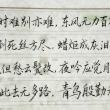 时难别亦难,东风无力百
到死丝方尽,蜡炬成灰泪
但愁云鬓改,夜吟应觉月
此去无多路,青鸟殷勤